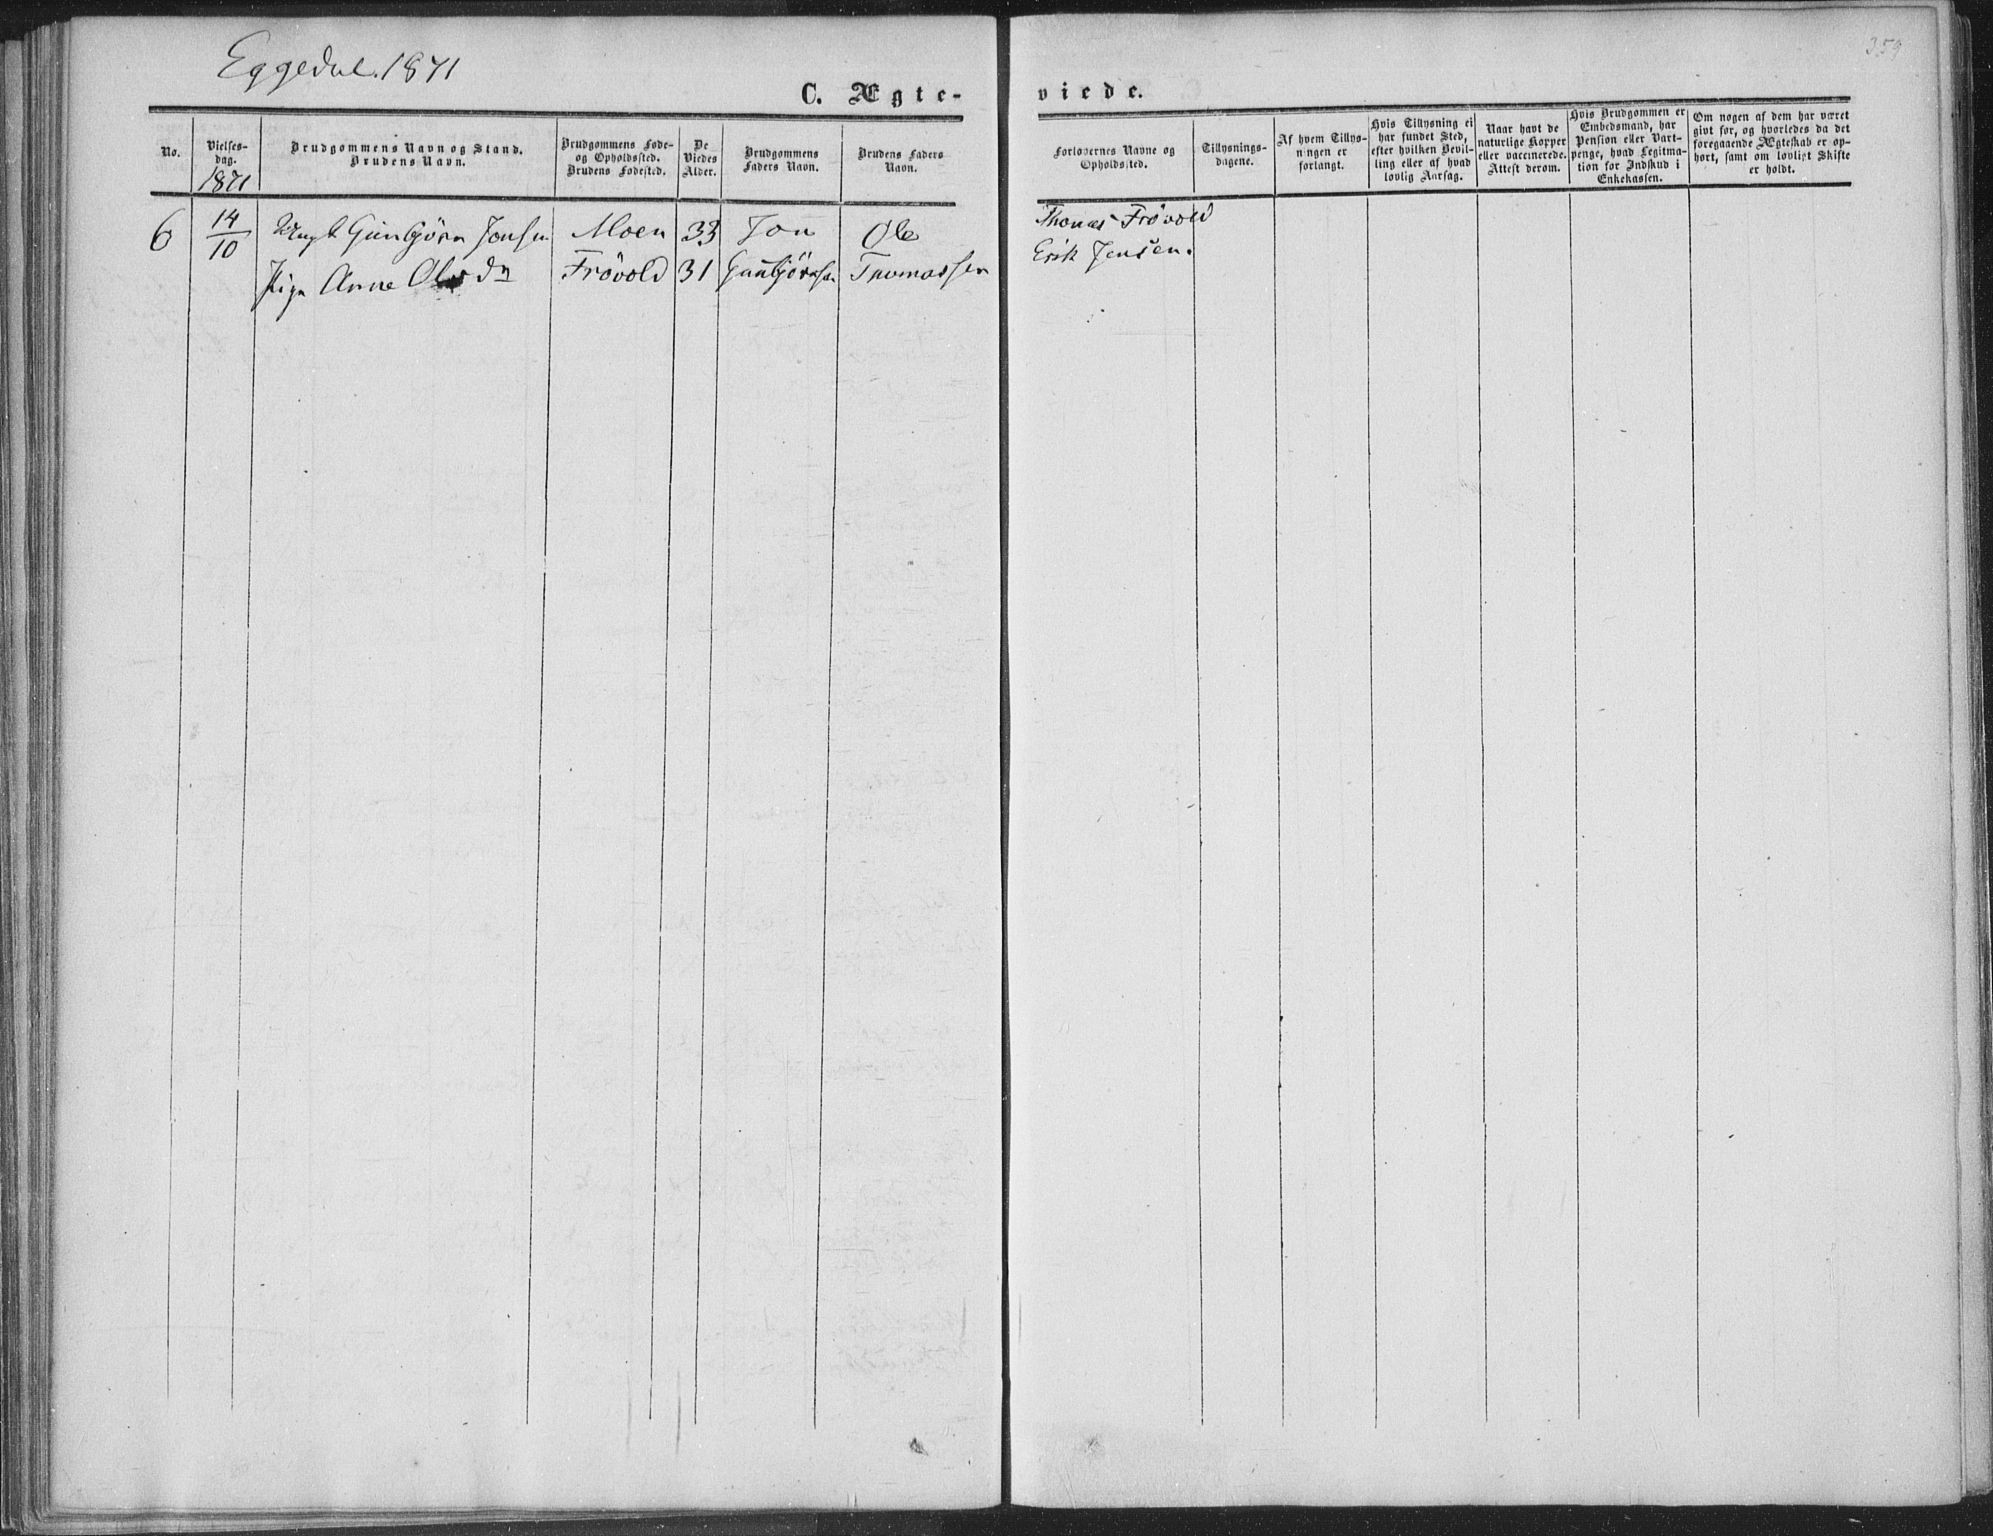 Eggedal. 1871
359
C. Ægte-
viede.
No.
Vielses-
dag.
1871
Brudgommens Navn og Stand.
Brudens Navn.
Brudgommens Føde-
og Opholdssted.
Brudens Fødested.
De
Viedes
Alder.
Brudgommens
Faders Navn.
Brudens Faders
Navn.
Forlovernes Navne og
Opholdssted.
Tillysnings-
dagene.
Af hvem Tillys-
ningen er
forlangt.
Hvis Tillysning ei
har fundet Sted,
efter hvilken Bevil-
ling eller af hvad
lovlig Aarsag.
Naar havt de
naturlige Kopper
eller vaccinerede.
Attest derom.
Hvis Brudgommen er
Embedsmand, har
Pension eller Vart-
penge, hvad Legitma-
tion for Indskud i
Enkekassen.
Om nogen af dem har været
givt før, og hvorledes da det
foregaaende Ægteskab er op-
hørt, samt om lovligt Skifte
er holdt.
6 14/10 Ungk Gunbjörn Jonsen Moen 33 Jon Ole Thomas Frövold
Pige Anne Olsdn Frövold 31 Gunbjörnsen Thomassen Erik Jensen.